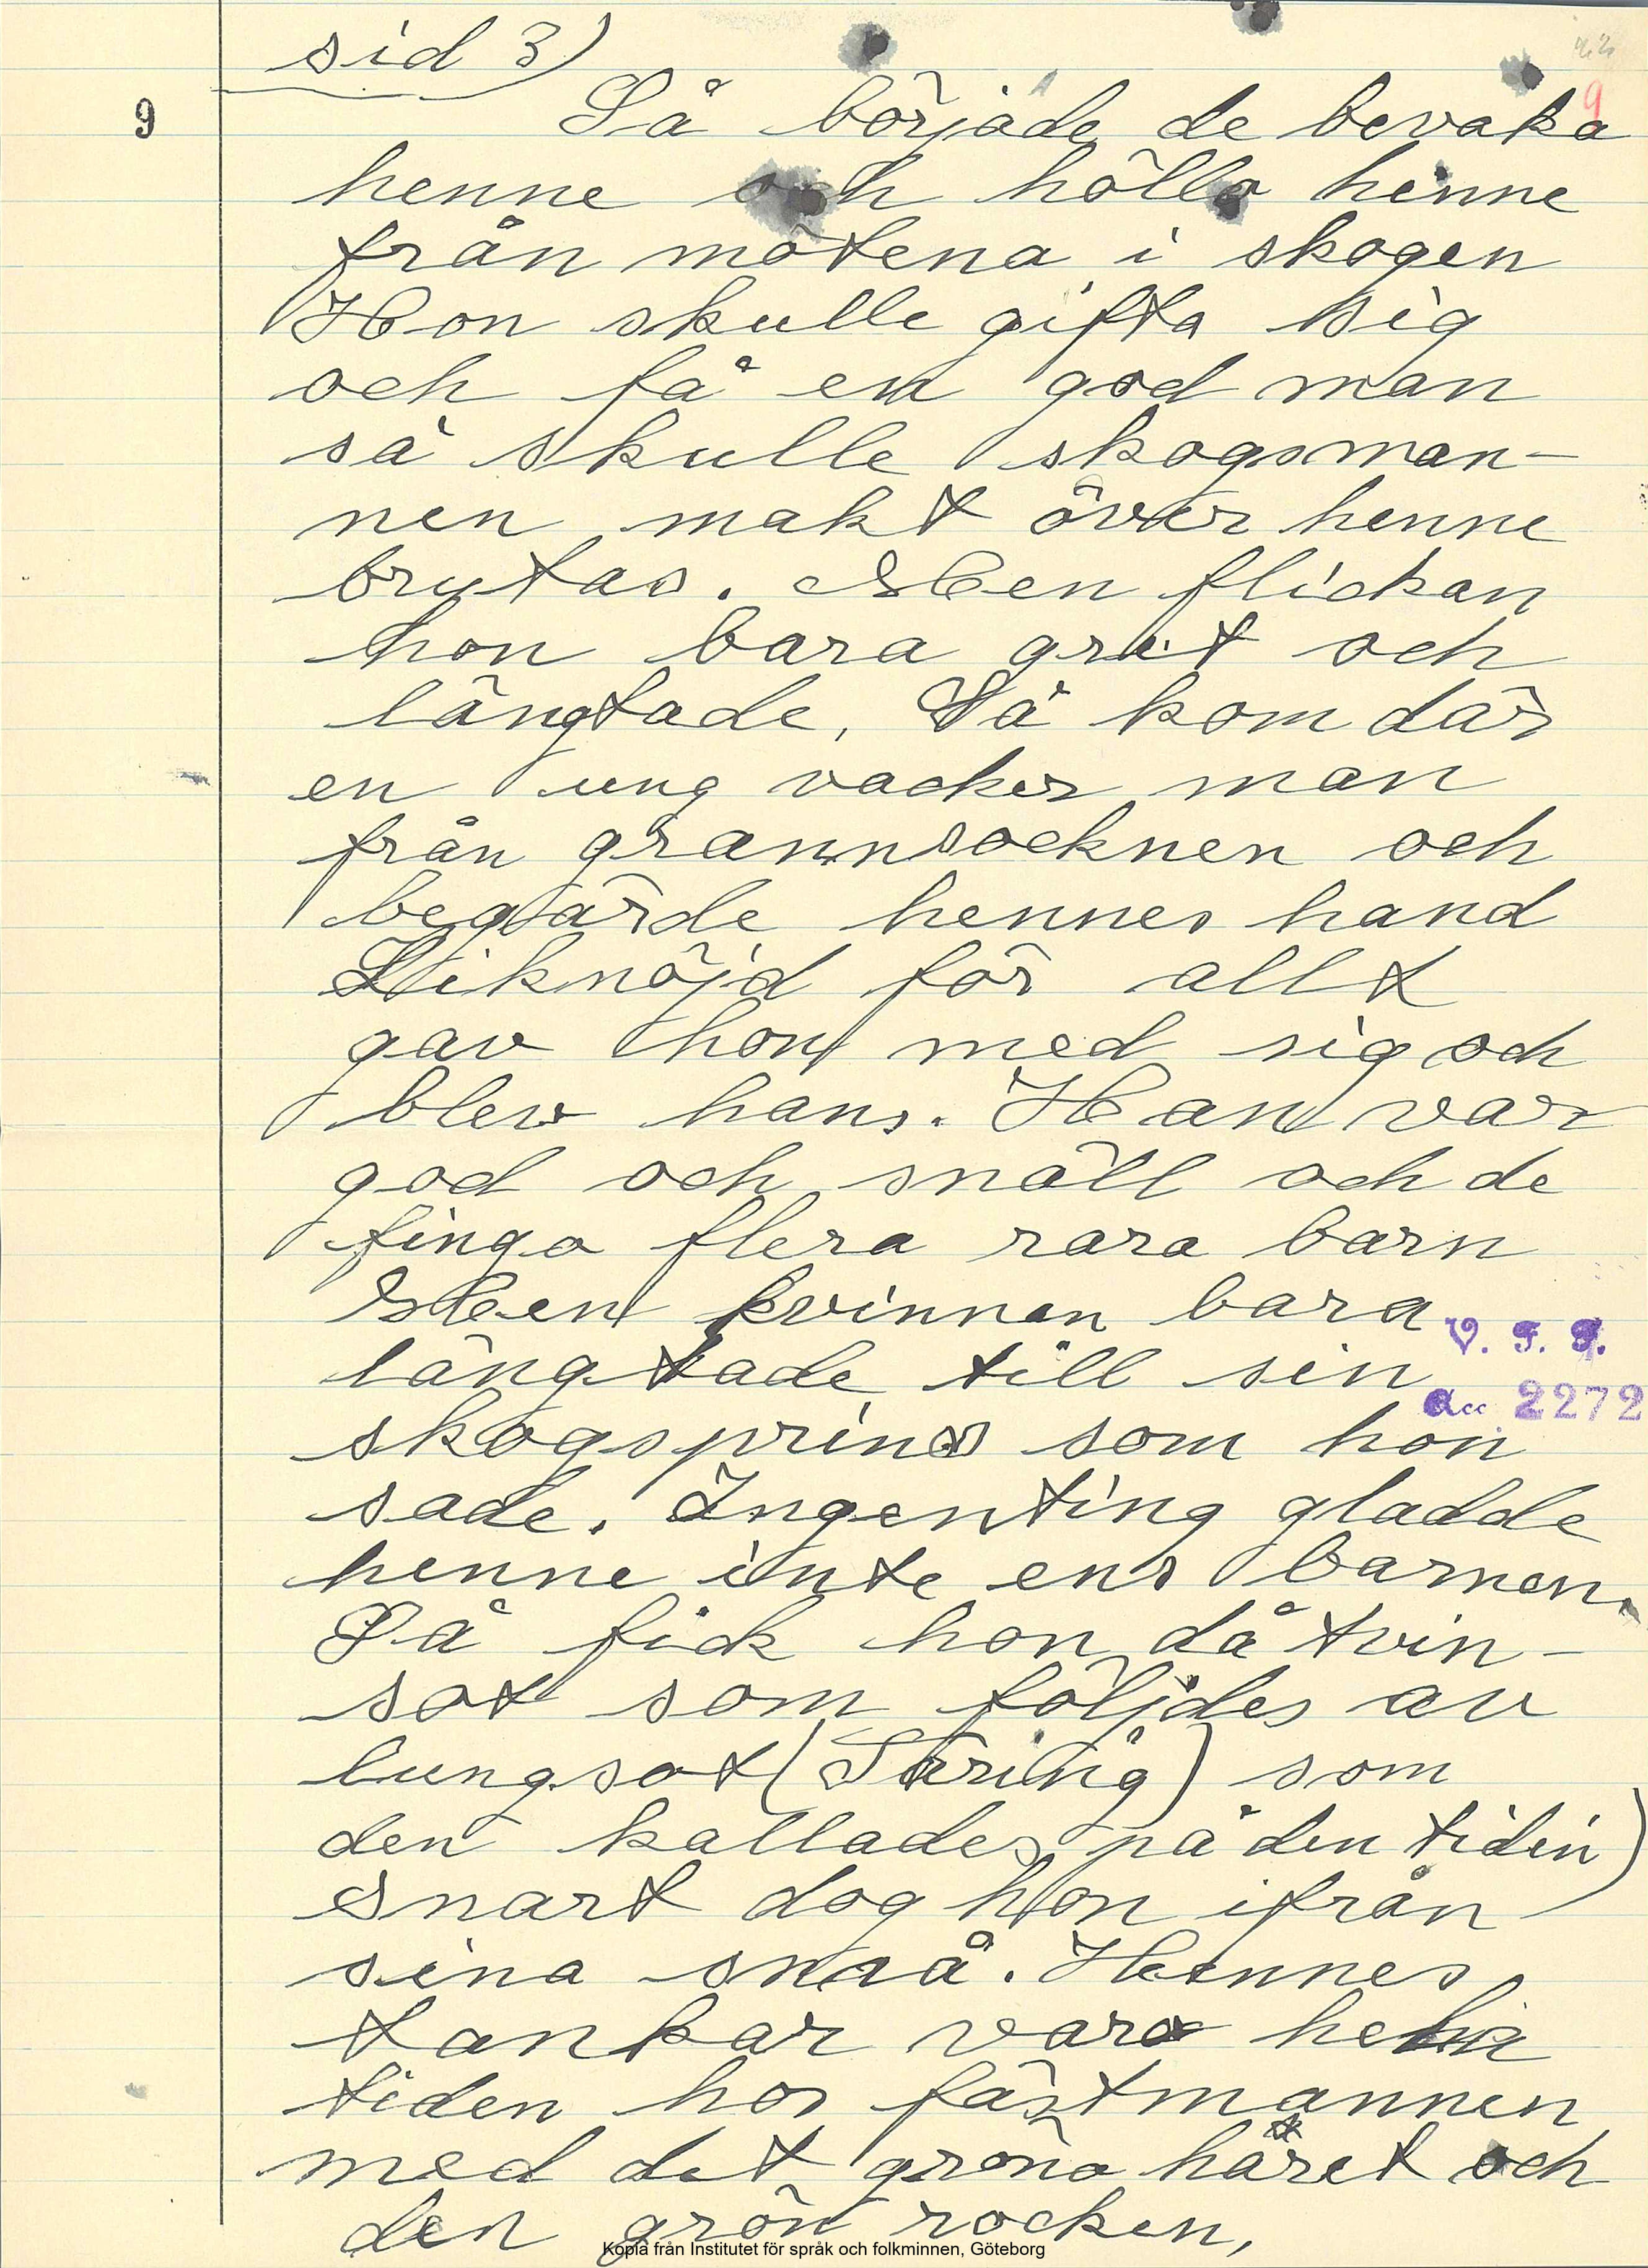 sid 3)
9
9
Så började de bevaka
henne och höllo henne
från mötena i skogen
Hon skulle gifta sig
och få en god man
så skulle skogsman-
nen makt över henne
brytas. Men flickan
hon bara grät och
längtade, Så kom där
en ung vacker man
från grannsocknen och
begärde hennes hand
Liknöjd för allt
gav hon med sig och
blev hans. Han var
god och snäll och de
fingo flera rara barn
Men kvinnan bara
längtade till sin
V. F. F.
acc 2272
skogsprins som hon
sade. Ingenting gladde
henne inte ens barnen.
Så fick hon då tvin-
sot som följdes av
lungsot (Tæring) som
den kallades på den tiden)
Snart dog hon ifrån
sina små. Hennes
tankar voro hela
tiden hos fästmannen
med det gröna håret och
den grön rocken,
Kopia från Institutet för språk och folkminnen, Göteborg